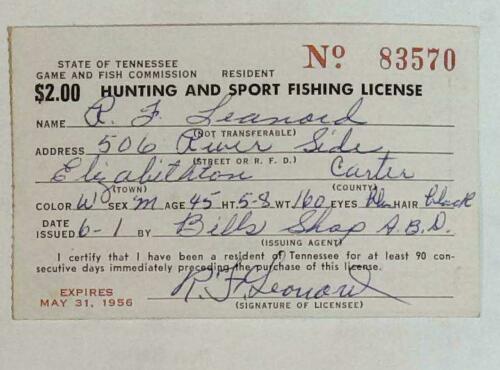 STATE OF TENNESSEE
GAME AND FISH COMMISSION RESIDENT
Nº 83570
$2.00 HUNTING AND SPORT FISHING LICENSE
NAME R. F. Leanord
(NOT TRANSFERABLE)
ADDRESS 506 River Side
(STREET OR R. F. D.)
Elizabethton Carter
(TOWN) (COUNTY)
COLOR W SEX M AGE 45 HT. 5-8 WT. 160 EYES HAIR black
DATE ISSUED 6-1 BY Bills Shop A.B.D.
(ISSUING AGENT)
I certify that I have been a resident of Tennessee for at least 90 con-
secutive days immediately preceding the purchase of this license.
EXPIRES
MAY 31, 1956
R. F. Leonard
(SIGNATURE OF LICENSEE)